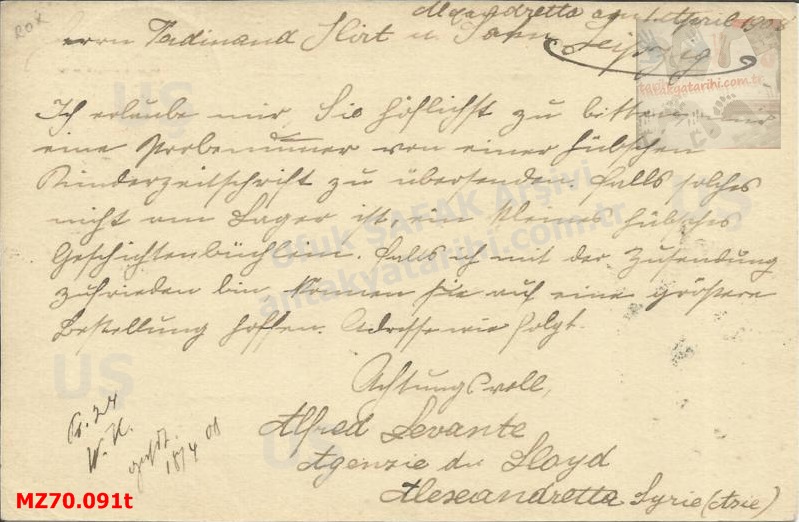 Alexandretta am 1. April 1908
Herrn Ferdinand Hirt u. Sohn Leipzig
Ich erlaube mir, Sie höflichst zu bitten mir
eine Probenummer von einer hübschen
Kinderzeitschrift zu übersenden. Falls solches
nicht am Lager ist, ein kleines hübsches
Geschichtenbüchlein. Falls ich mit der Zusendung
zufrieden bin können Sie auf eine größere
Bestellung hoffen. Adresse wie folgt.
Achtungsvoll,
Alfred Levante
Agenzie du Lloyd
Alexandretta Syrie (Asie)
W. K.
18/4 08
antakyatarihi.com.tr
UŞ
UŞ
Ufuk ŞAFAK Arşivi
antakyatarihi.com.tr
UŞ
UŞ
MZ70.091t